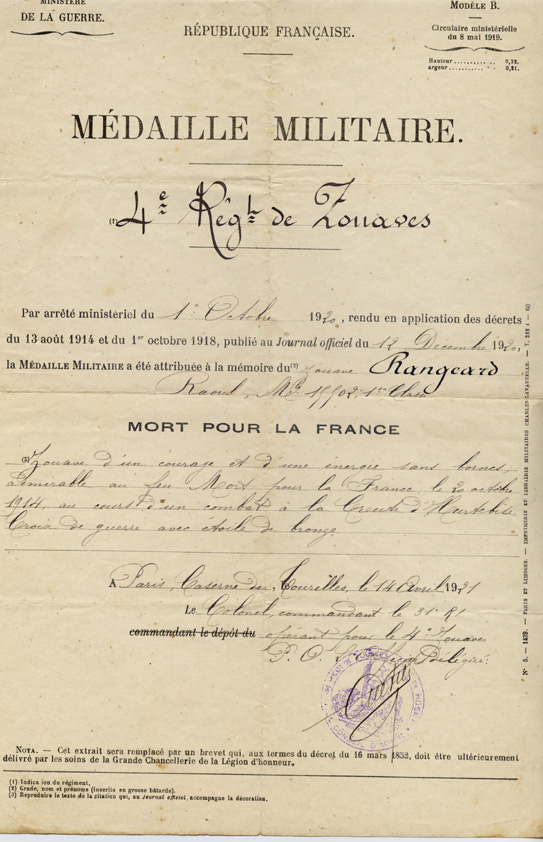 MINISTÈRE
DE LA GUERRE.
RÉPUBLIQUE FRANÇAISE.
MODÈLE B.
Circulaire ministérielle
du 8 mai 1919.
Hauteur ........... 0,32.
argeur ........... 0,21.
MÉDAILLE MILITAIRE.
(1) 4e Régt de Zouaves
Par arrêté ministériel du 1er Octobre 1920, rendu en application des décrets
du 13 août 1914 et du 1er octobre 1918, publié au Journal officiel du 12 Décembre 1920,
la MÉDAILLE MILITAIRE a été attribuée à la mémoire du(2) zouave Rangeard
Raoul, Mle 1re Classe
MORT POUR LA FRANCE
(3) Zouave d'un courage et d'une énergie sans bornes,
admirable au feu Mort pour la France le 20 octobre
1914, au cours d'un combat à la Creute d'Hurtebise
Croix de guerre avec étoile de bronze.
A Paris, Caserne des Tourelles, le 14 Avril 1921
Le Colonel, commandant le 31e RI
commandant le dépôt du opérant pour le 4e Zouaves
P. O. Délégué.
NOTA. — Cet extrait sera remplacé par un brevet qui, aux termes du décret du 16 mars 1852, doit être ultérieurement
délivré par les soins de la Grande Chancellerie de la Légion d'honneur.
(1) Indica ion du régiment.
(2) Grade, nom et prénoms (inscrits en grosse bâtarde).
(3) Reproduire le texte de la citation qui, au Journal officiel, accompagne la décoration.
N° 5. — 1429. — PARIS ET LIMOGES. — IMPRIMERIE ET LIBRAIRIE MILITAIRES CHARLES-LAVAUZELLE.